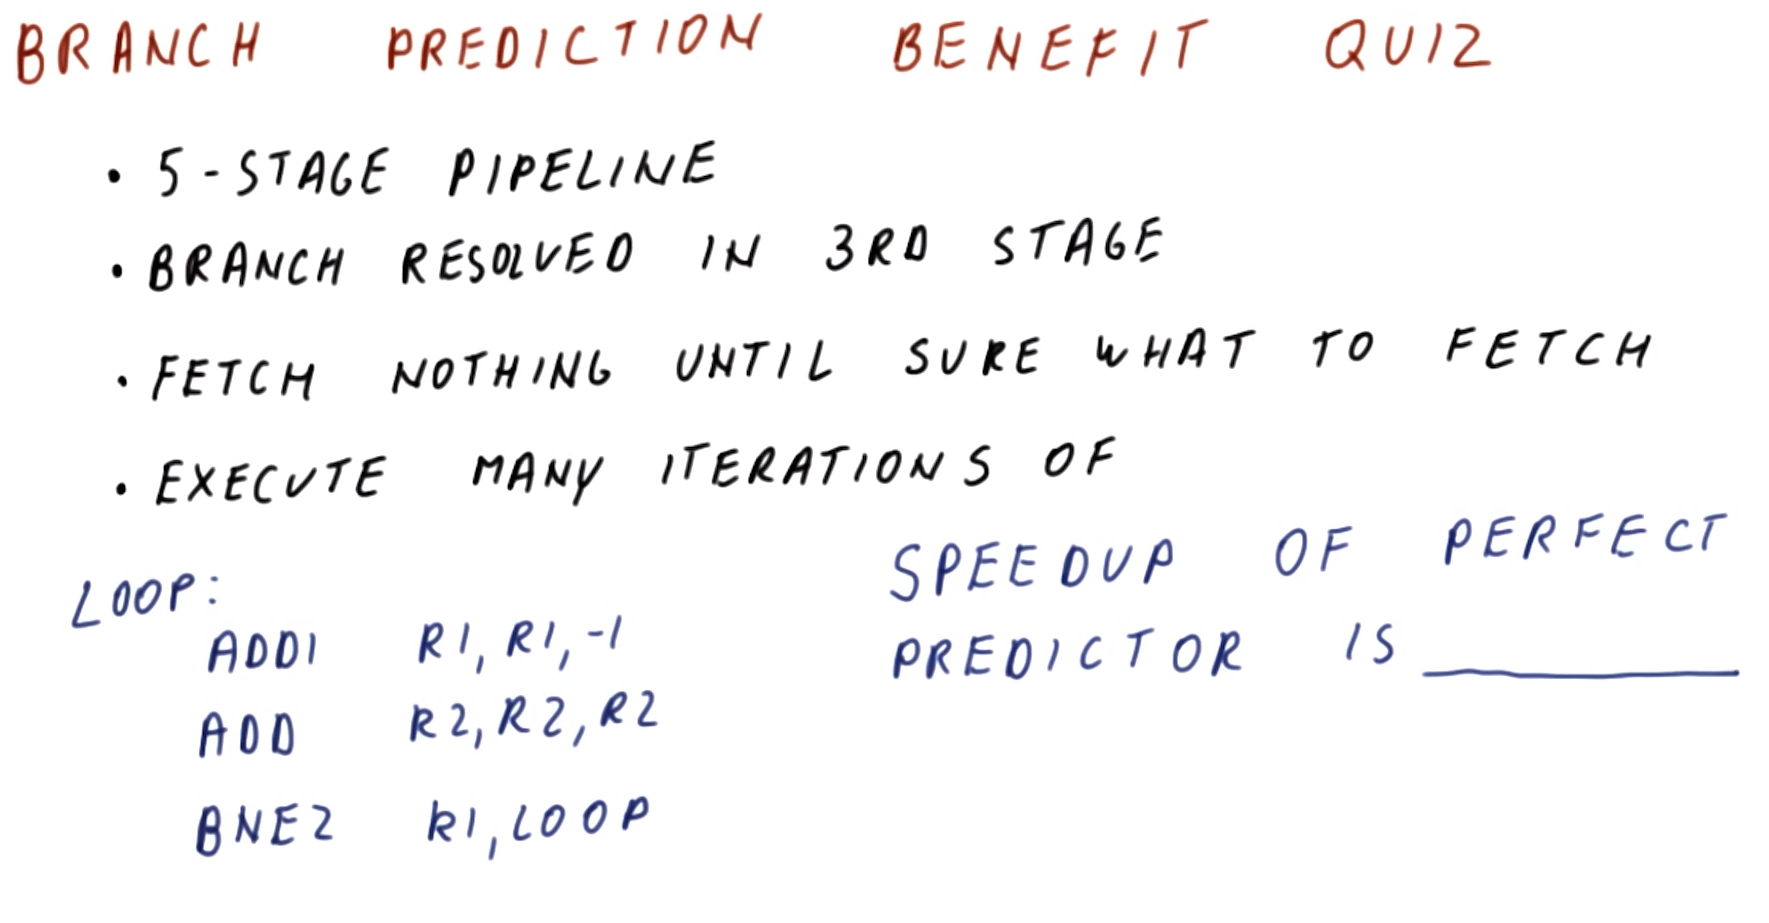 BRANCH PREDICTION BENEFIT QUIZ
• 5-STAGE PIPELINE
• BRANCH RESOLVED IN 3RD STAGE
• FETCH NOTHING UNTIL SURE WHAT TO FETCH
• EXECUTE MANY ITERATIONS OF
LOOP:
ADDI R1, R1, -1
ADD R2, R2, R2
BNEZ R1, LOOP
SPEEDUP OF PERFECT
PREDICTOR IS ________